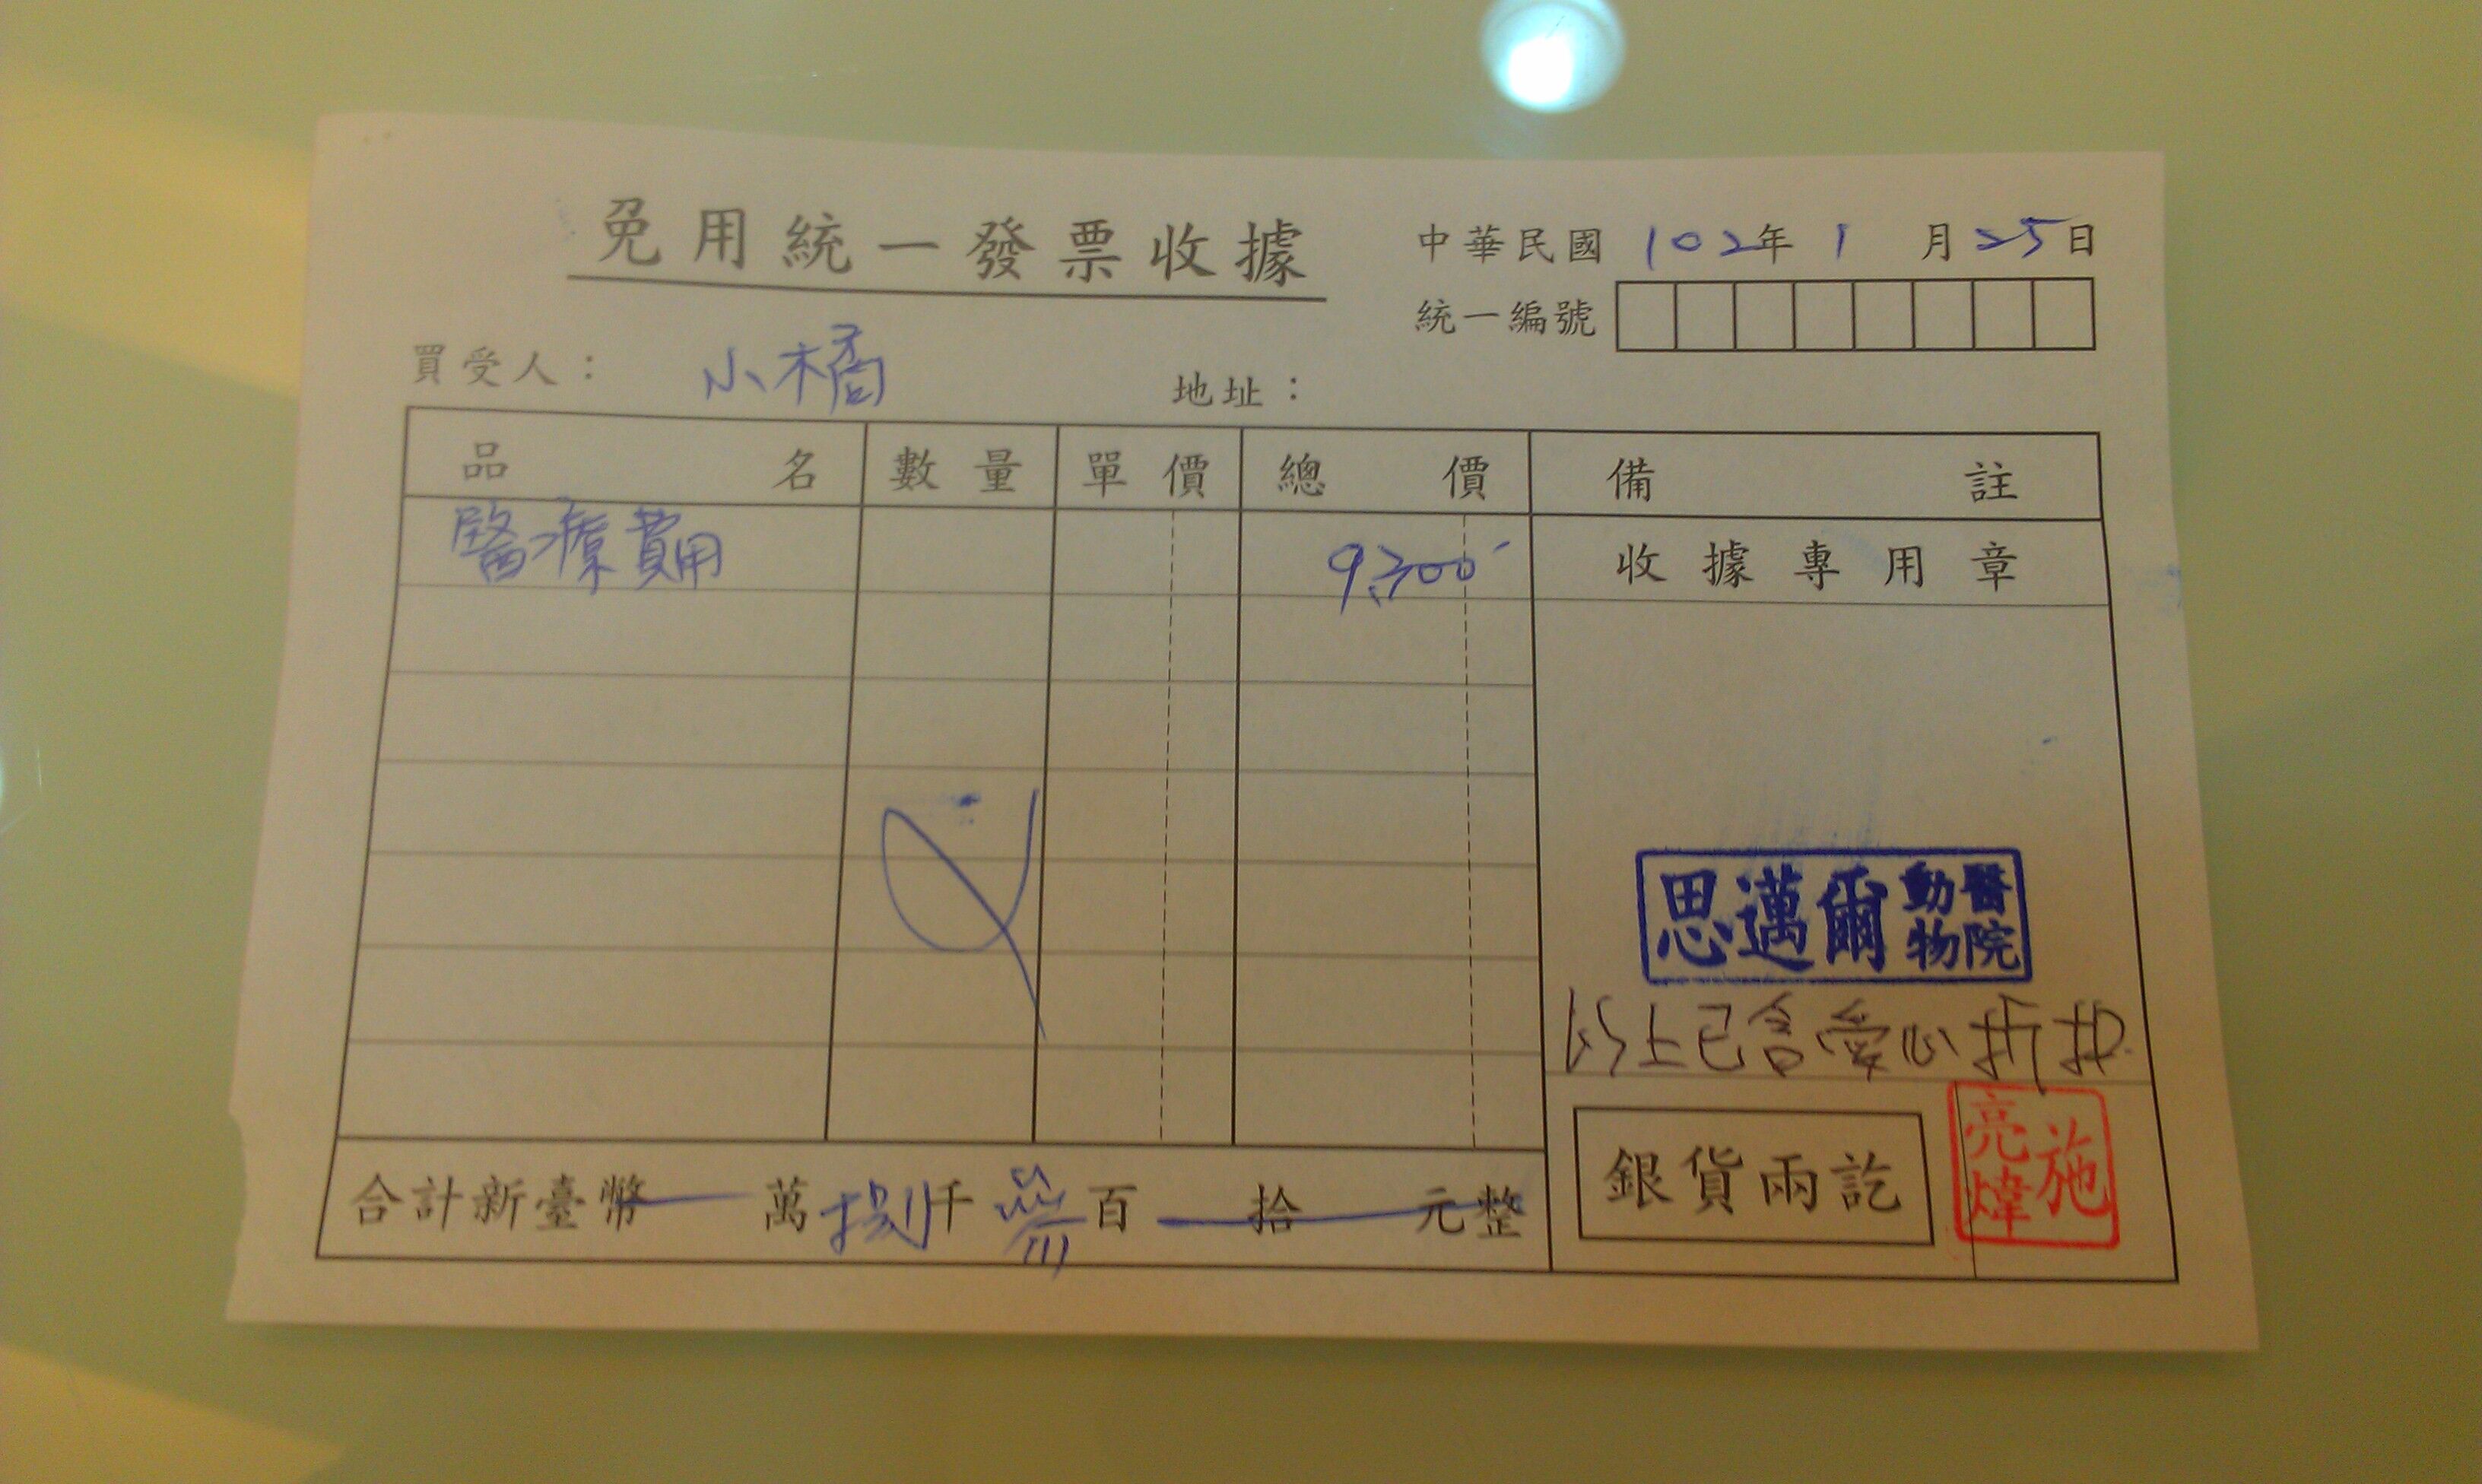 免用統一發票收據
中華民國 102年 1 月 25日
統一編號
買受人： 小橘 地址：
品名 數量 單價 總價 備註
醫療費用
收據專用章
思邁爾動物醫院
以上已含愛心折扣
合計新臺幣 萬捌千參百 拾 元整
銀貨兩訖
施亮煒